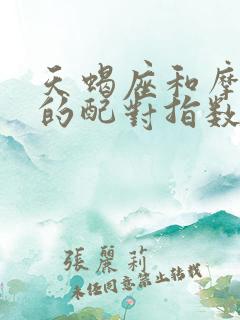 天蝎座和摩
的配對指数
張麗莉
未经同意禁止转载